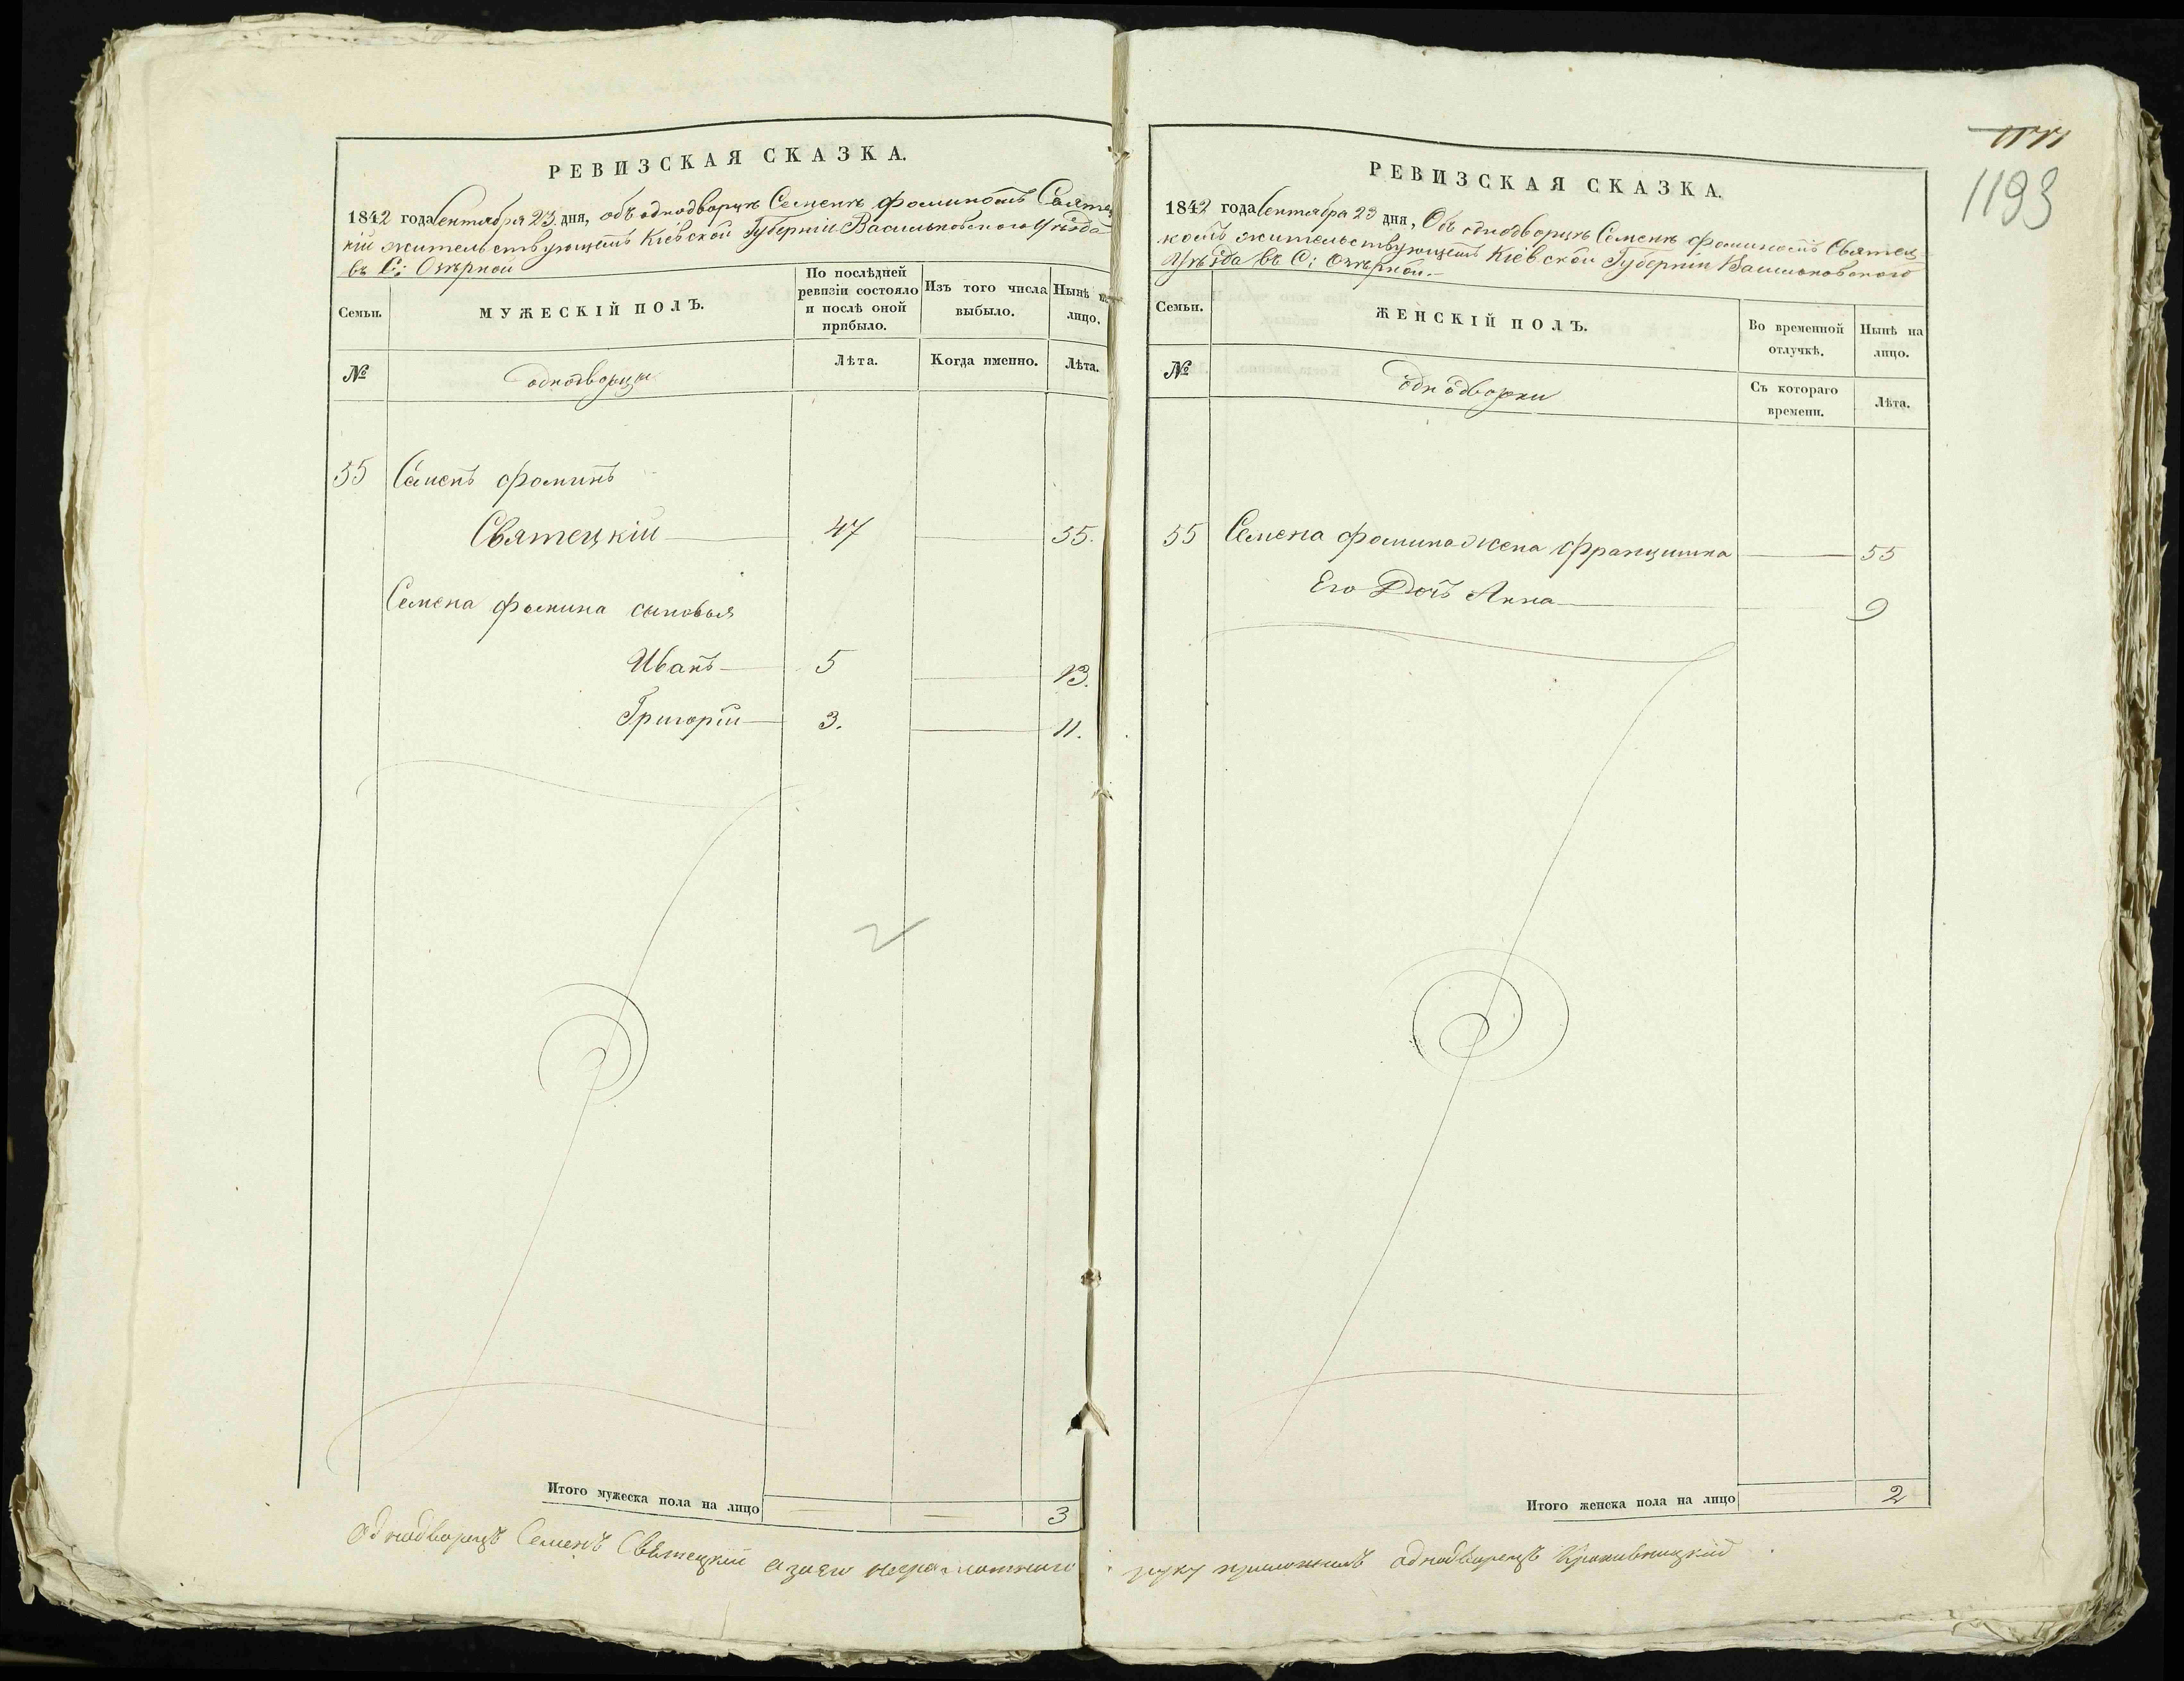 РЕВИЗСКАЯ СКАЗКА.
1842 года Сентября 23. дня, объ однодворцѣ Семенѣ Фоминомъ Святец
кій жительствующемъ Кіевской Губерніи Васильковского Уѣзда
въ С: Озѣрной
Семьи.
МУЖЕСКІЙ ПОЛЪ.
По послѣдней
ревизіи состояло
и послѣ оной
прибыло.
Изъ того числа
выбыло.
Нынѣ на
лицо.
№
однодворцы
Лѣта.
Когда именно.
Лѣта.
55 Семенъ Фоминъ
Святецкій 47 55.
Семена Фомина сыновья
Иванъ 5 13.
Григорій 3. 11.
Итого мужеска пола на лицо 3
Однодворецъ Семенъ Святецкій а за его неграмотного
1193
РЕВИЗСКАЯ СКАЗКА.
1842 года Сентября 23 дня, Объ однодворцѣ Семенѣ Фоминомъ Святец
комъ жительствующемъ Кіевской Губерніи Васильковского
Уѣзда въ С: Озѣрной.
Семьи.
ЖЕНСКІЙ ПОЛЪ.
Во временной
отлучкѣ.
Нынѣ на
лицо.
№
однодворки
Съ котораго
времени.
Лѣта.
55 Семена Фомина жена Францишка 55
Его Дочь Анна 9
Итого женска пола на лицо 2
руку приложилъ однодворецъ Кропивницкій